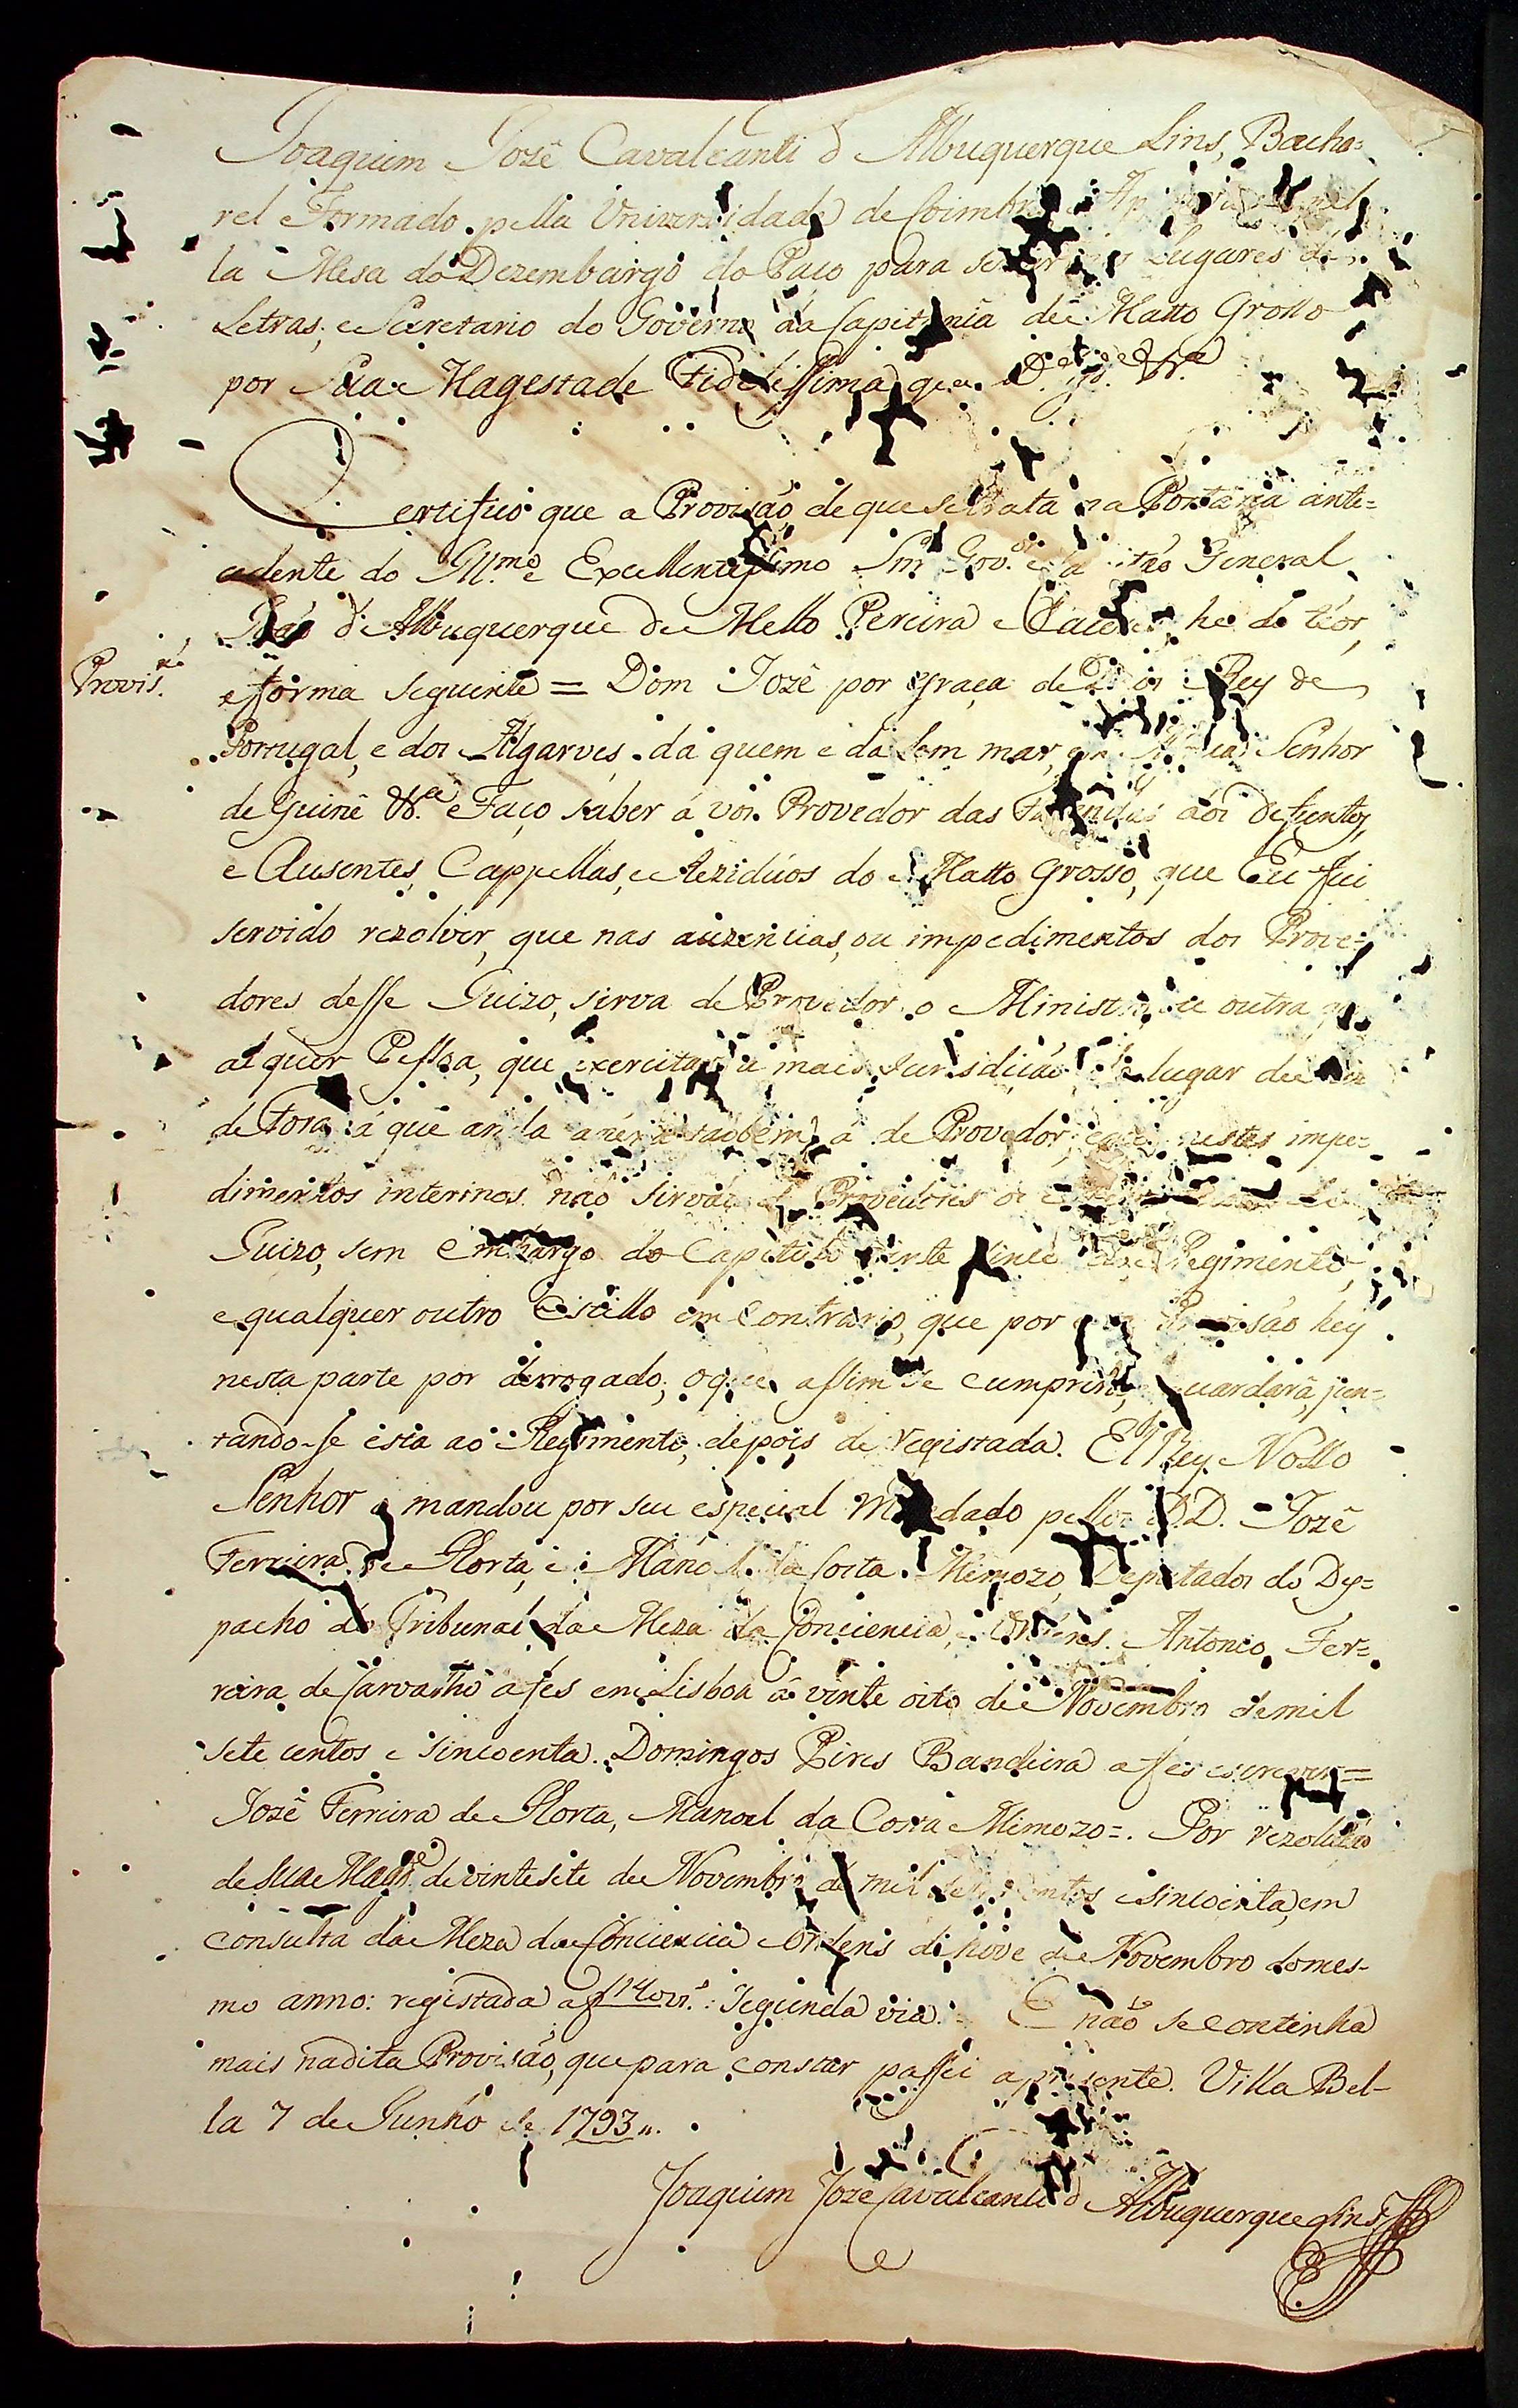 Joaquim Jozê Cavalcanti d'Albuquerque Lins, Bacha=
rel Formado pella Universidade de Coimbra
la Mesa do Dezembargo do Paço para servir Lugares de
Letras, e Secretario do Governo da Capitania de Matto Grosso
por Sua Magestade Fidelissima que D.s g.de &.ª
Certifico que a Provizão de que se trata na Portaria ante=
cedente do Ill.mo e Excellentissimo Snr Gov.or e Capitão General
João d'Albuquerque de Mello Pereira e Caceres he do teor,
Provis.ão
e forma seguinte = Dom Jozê por graça de Deos Rey de
Portugal, e dos Algarves, da quem e da lem mar, Senhor
de Guinê &.ª Faço saber á vos Provedor das Fazendas dos Defuntos,
e Ausentes, Cappellas, e Rezidúos do Matto Grosso, que Eu fui
servido rezolver, que nas auzencias, ou impedimentos dos Prove=
dores desse Juizo, sirva de Provedor o Ministro, ou outra qu
al quer Pessoa, que exercitar a mais Jurisdição do lugar de
de Fora á que anda anéxa tãobem á de Provedor, e que nestes impe=
dimentos interinos não sirvão de Provedores os
Juizo, sem embargo do Capitulo vinte sinco Regimento,
e qualquer outro Estillo em Contrario, que por Provisão hey
nesta parte por derrogado; o que assim se cumprirá, guardará, jun=
tando-se esta ao Regimento, depois de registada. El Rey Nosso
Senhor o mandou por seu especial Mandado pellos D.D. Jozê
Ferreira de Horta, e Manoel da Costa Mimozo, Deputados do Des=
pacho do Tribunal da Meza da Conciencia, e Ordens. Antonio Fer=
reira de Carvalho a fes em Lisboa á vinte oito de Novembro de mil
sete centos e sincoenta. Domingos Pires Bandeira a fes escrever =
Jozê Ferreira de Horta, Manoel da Costa Mimozo =. Por rezolução
de Sua Mag.de de vinte sete de Novembro de mil sete centos e sincoenta, em
consulta da Meza da Conciencia e Ordens de nove de Novembro do mes-
mo anno: registada a f 140 v.º: Segunda via. = E não se continha
mais na dita Provizão, que para constar passei a presente. Villa Bel-
la 7 de Junho de 1793 ".
Joaquim Jozê Cavalcanti d'Albuquerque Lins